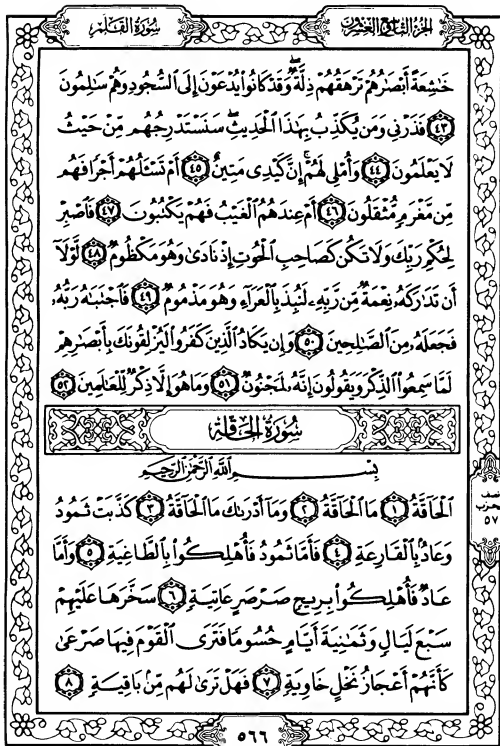 سُورَةُ القَلَمِ
الجُزءُ التَّاسِعُ وَالعِشرُونَ
خَٰشِعَةً أَبْصَٰرُهُمْ تَرْهَقُهُمْ ذِلَّةٌ ۖ وَقَدْ كَانُوا۟ يُدْعَوْنَ إِلَى ٱلسُّجُودِ وَهُمْ سَٰلِمُونَ
٤٣ فَذَرْنِى وَمَن يُكَذِّبُ بِهَٰذَا ٱلْحَدِيثِ ۖ سَنَسْتَدْرِجُهُم مِّنْ حَيْثُ
لَا يَعْلَمُونَ ٤٤ وَأُمْلِى لَهُمْ ۚ إِنَّ كَيْدِى مَتِينٌ ٤٥ أَمْ تَسْـَٔلُهُمْ أَجْرًا فَهُم
مِّن مَّغْرَمٍ مُّثْقَلُونَ ٤٦ أَمْ عِندَهُمُ ٱلْغَيْبُ فَهُمْ يَكْتُبُونَ ٤٧ فَٱصْبِرْ
لِحُكْمِ رَبِّكَ وَلَا تَكُن كَصَاحِبِ ٱلْحُوتِ إِذْ نَادَىٰ وَهُوَ مَكْظُومٌ ٤٨ لَّوْلَآ
أَن تَدَٰرَكَهُۥ نِعْمَةٌ مِّن رَّبِّهِۦ لَنُبِذَ بِٱلْعَرَآءِ وَهُوَ مَذْمُومٌ ٤٩ فَٱجْتَبَٰهُ رَبُّهُۥ
فَجَعَلَهُۥ مِنَ ٱلصَّٰلِحِينَ ٥٠ وَإِن يَكَادُ ٱلَّذِينَ كَفَرُوا۟ لَيُزْلِقُونَكَ بِأَبْصَٰرِهِمْ
لَمَّا سَمِعُوا۟ ٱلذِّكْرَ وَيَقُولُونَ إِنَّهُۥ لَمَجْنُونٌ ٥١ وَمَا هُوَ إِلَّا ذِكْرٌ لِّلْعَٰلَمِينَ ٥٢
سُورَةُ الحَاقَّةِ
بِسْمِ ٱللَّهِ ٱلرَّحْمَٰنِ ٱلرَّحِيمِ
ٱلْحَآقَّةُ ١ مَا ٱلْحَآقَّةُ ٢ وَمَآ أَدْرَىٰكَ مَا ٱلْحَآقَّةُ ٣ كَذَّبَتْ ثَمُودُ
وَعَادٌۢ بِٱلْقَارِعَةِ ٤ فَأَمَّا ثَمُودُ فَأُهْلِكُوا۟ بِٱلطَّاغِيَةِ ٥ وَأَمَّا
عَادٌ فَأُهْلِكُوا۟ بِرِيحٍ صَرْصَرٍ عَاتِيَةٍ ٦ سَخَّرَهَا عَلَيْهِمْ
سَبْعَ لَيَالٍ وَثَمَٰنِيَةَ أَيَّامٍ حُسُومًا فَتَرَى ٱلْقَوْمَ فِيهَا صَرْعَىٰ
كَأَنَّهُمْ أَعْجَازُ نَخْلٍ خَاوِيَةٍ ٧ فَهَلْ تَرَىٰ لَهُم مِّنۢ بَاقِيَةٍ ٨
٥٦٦